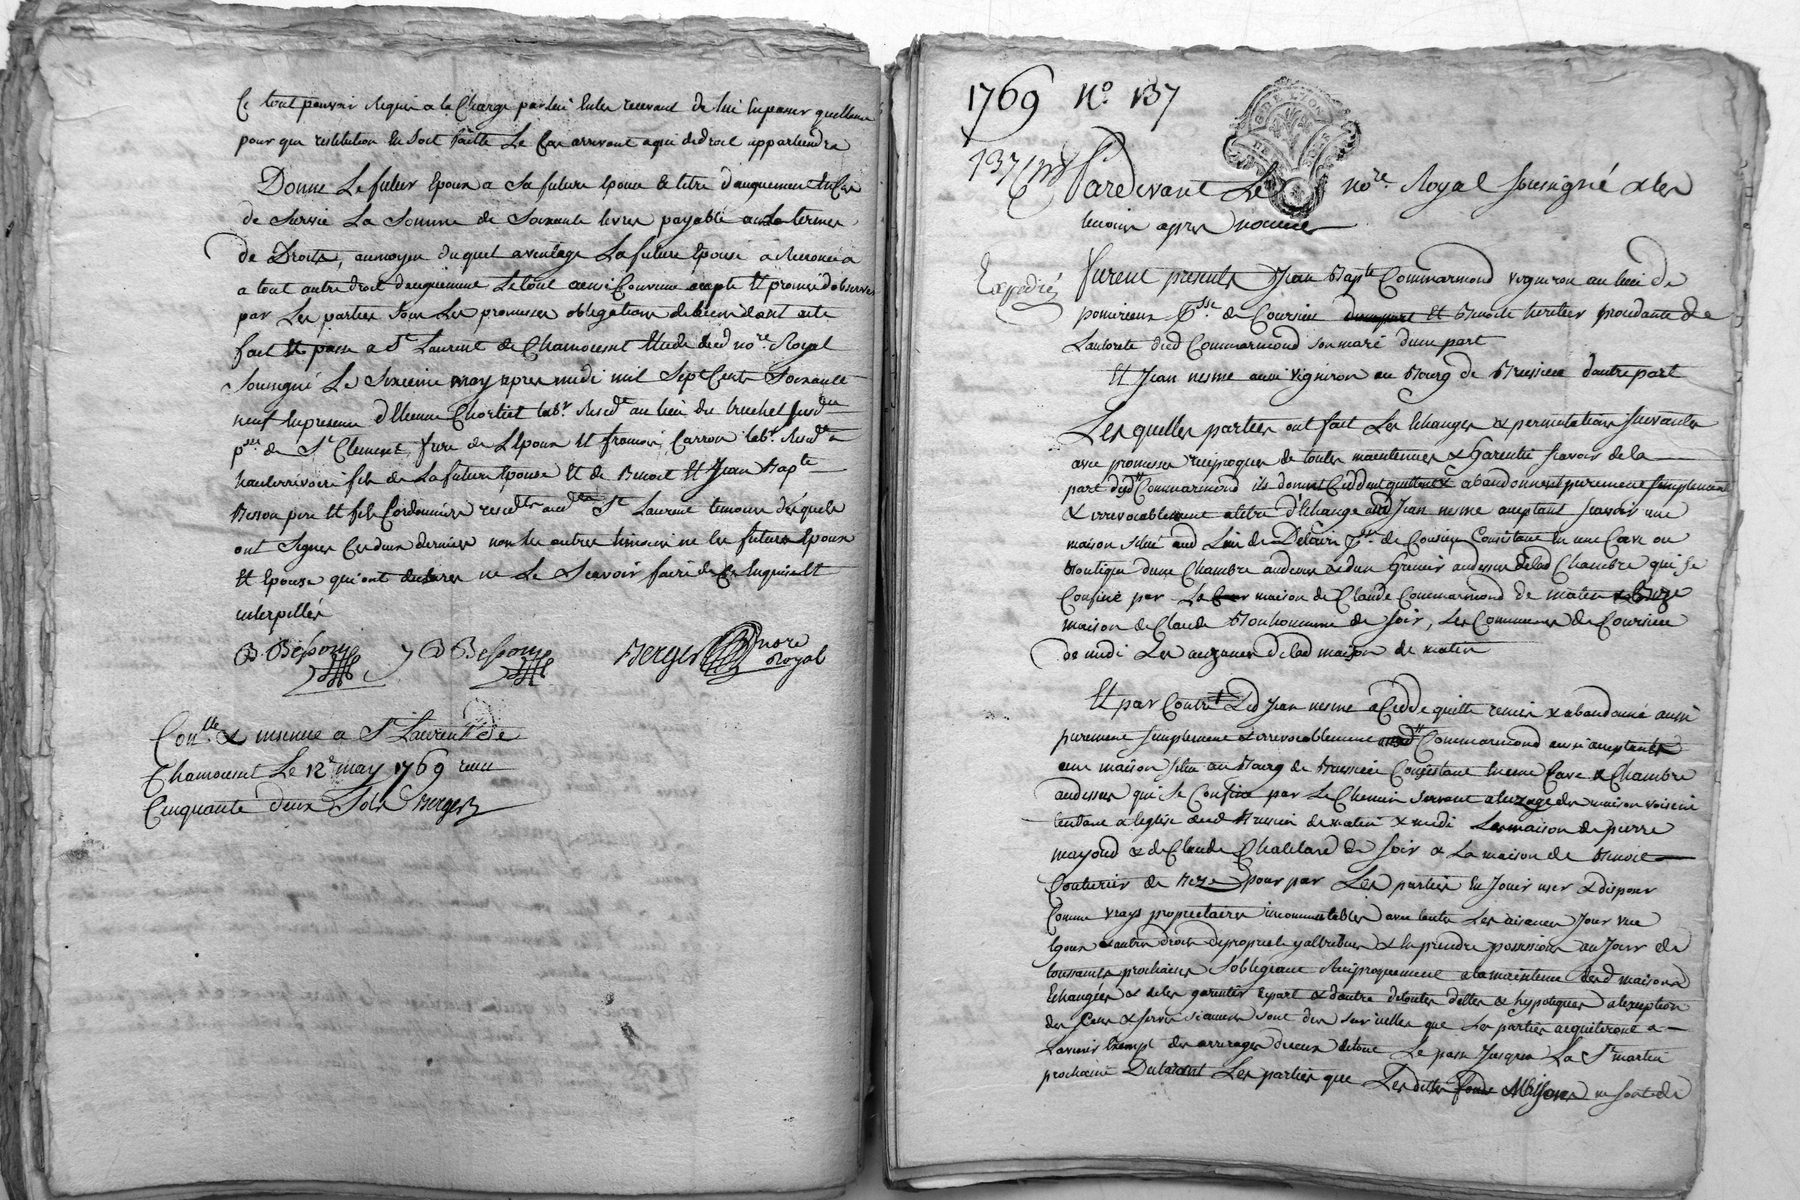 Ce tout pouvoir requis a la Charge par lui
pour que restitution en soit faitte Le Cas arrivant a qui de droit appartiendra
Donne Le futur Epoux a Sa future Epouse a titre d'augment
de Survie La Somme de Soixante livres payable aux termes
de Droits, au moyen duquel avantage La future Epouse a Renoncé
a tout autre droit daugment Le tout ainsi Convenu accepté Et promis d'observer
par Les parties sous Les promesses obligations de biens dont acte
fait Et passé a St Laurent de Chamousset Etude dud nore. Royal
Soussigné Le Sixieme may apres midi mil Sept Cents Soixante
neuf En presence d'Etienne labr. Resdt au lieu du
psse de St Clement, frere de L'Epoux Et francois Carron labr. Resdt a
hauterivoire fils de La future Epouse Et de Benoit Et Jean Bapte
Besson pere Et fils Cordonniers residts aud St Laurent temoins desquels
ont Signés Ces deux derniers non les autres temoins ni les futurs Epoux
Et Epouse qui ont declares ne Le Scavoir faire de Ce Enquis Et
interpellés
B. Besson J B Besson Berger nore Royal
Conlle & insinué a St Laurent de
Chamousset Le 12e may 1769 recu
Cinquante deux Sols Berger
1769 No 137
137
GNRE LYON
Pardevant Le nore. Royal soussigné & les
temoins apres nommés
Expedié
furent presents Jean Bapte Commarmond vigneron au lieu de
pomerieux psse de Coursieu Et Benoite heritier procedante de
L'autorité dud Commarmond son mari d'une part
Et Jean nesme aussi vigneron au Bourg de Brussieu d'autre part
Lesquelles parties ont fait Les Echanges & permutations suivantes
avec promesse reciproques de toutes maintenues & Garentie scavoir de la
part dudt Commarmond ils donnent Ceddent quittent & abandonnent purement simplement
& irrevocablement a titre d'Echange aud Jean nesme acceptant scavoir une
maison située aud Lieu de psse de Coursieu Consistant En une Cave ou
Boutique d'une Chambre au dessus & d'un Grenier au dessus de lad Chambre qui se
Confine par maison de Claude Commarmond de matin & Bize
maison de Claude Bonhomme de soir, Les Communes de Coursieu
de midi Les aizances de lad maison de matin
Et par Contre Led Jean nesme a Ceddé quitté remis & abandonné aussi
purement simplement & irrevocablement audt Commarmond aussi acceptants
une maison située au Bourg de Brussieu Consistant En une Cave & Chambre
au dessus qui se Confine par Le Chemin servant a l'uzage des maisons voisine
tendant a l'eglise dud Brussieu de matin & midi Les maison de pierre
mayoud & de Claude de soir & La maison de Benoit
Couturier de Bize pour par Les parties En Jouir user & disposer
Comme vrays proprietaires incommutables avec toutes Les aisances Jour vue
Egoux & autres droits de proprieté y attribués & En prendre possession au Jour de
toussaints prochaine s'obligeant Reciproquement a la maintenue desd maisons
Echangées & de les garentir Epart & d'autre de toutes dettes & hypoteques a l'exception
des Cens & servis si aucuns sont dus sur icelles que Les parties acquiteront a
L'avenir Exempt des arrerages d'iceux de tout Le passé Jusqua La St martin
prochaine Declarant Les parties que Les dittes Maisons ne sont de